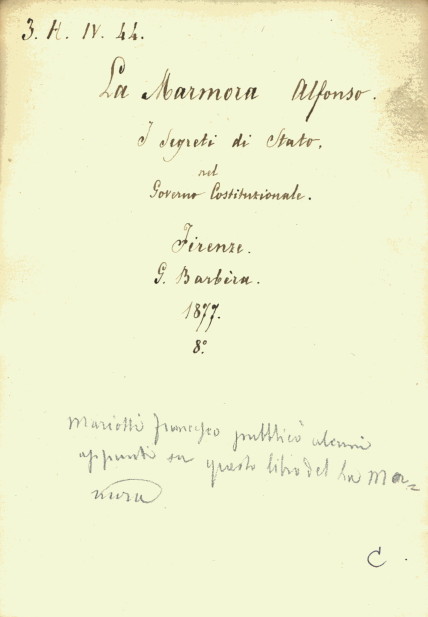 3. H. IV. 44.
La Marmora Alfonso.
I segreti di Stato.
nel
Governo Costituzionale.
Firenze.
G. Barbèra.
1877.
8º
Mariotti Francesco pubblicò alcuni
appunti su questo libro del La Mar=
mora
C.